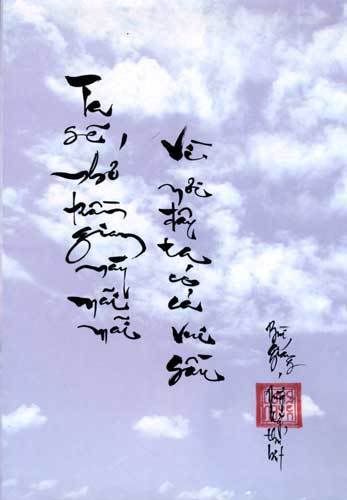 Ta sẽ nhớ trần gian này mãi mãi
Vì nơi đây ta có cả vui sầu
Bùi Giáng